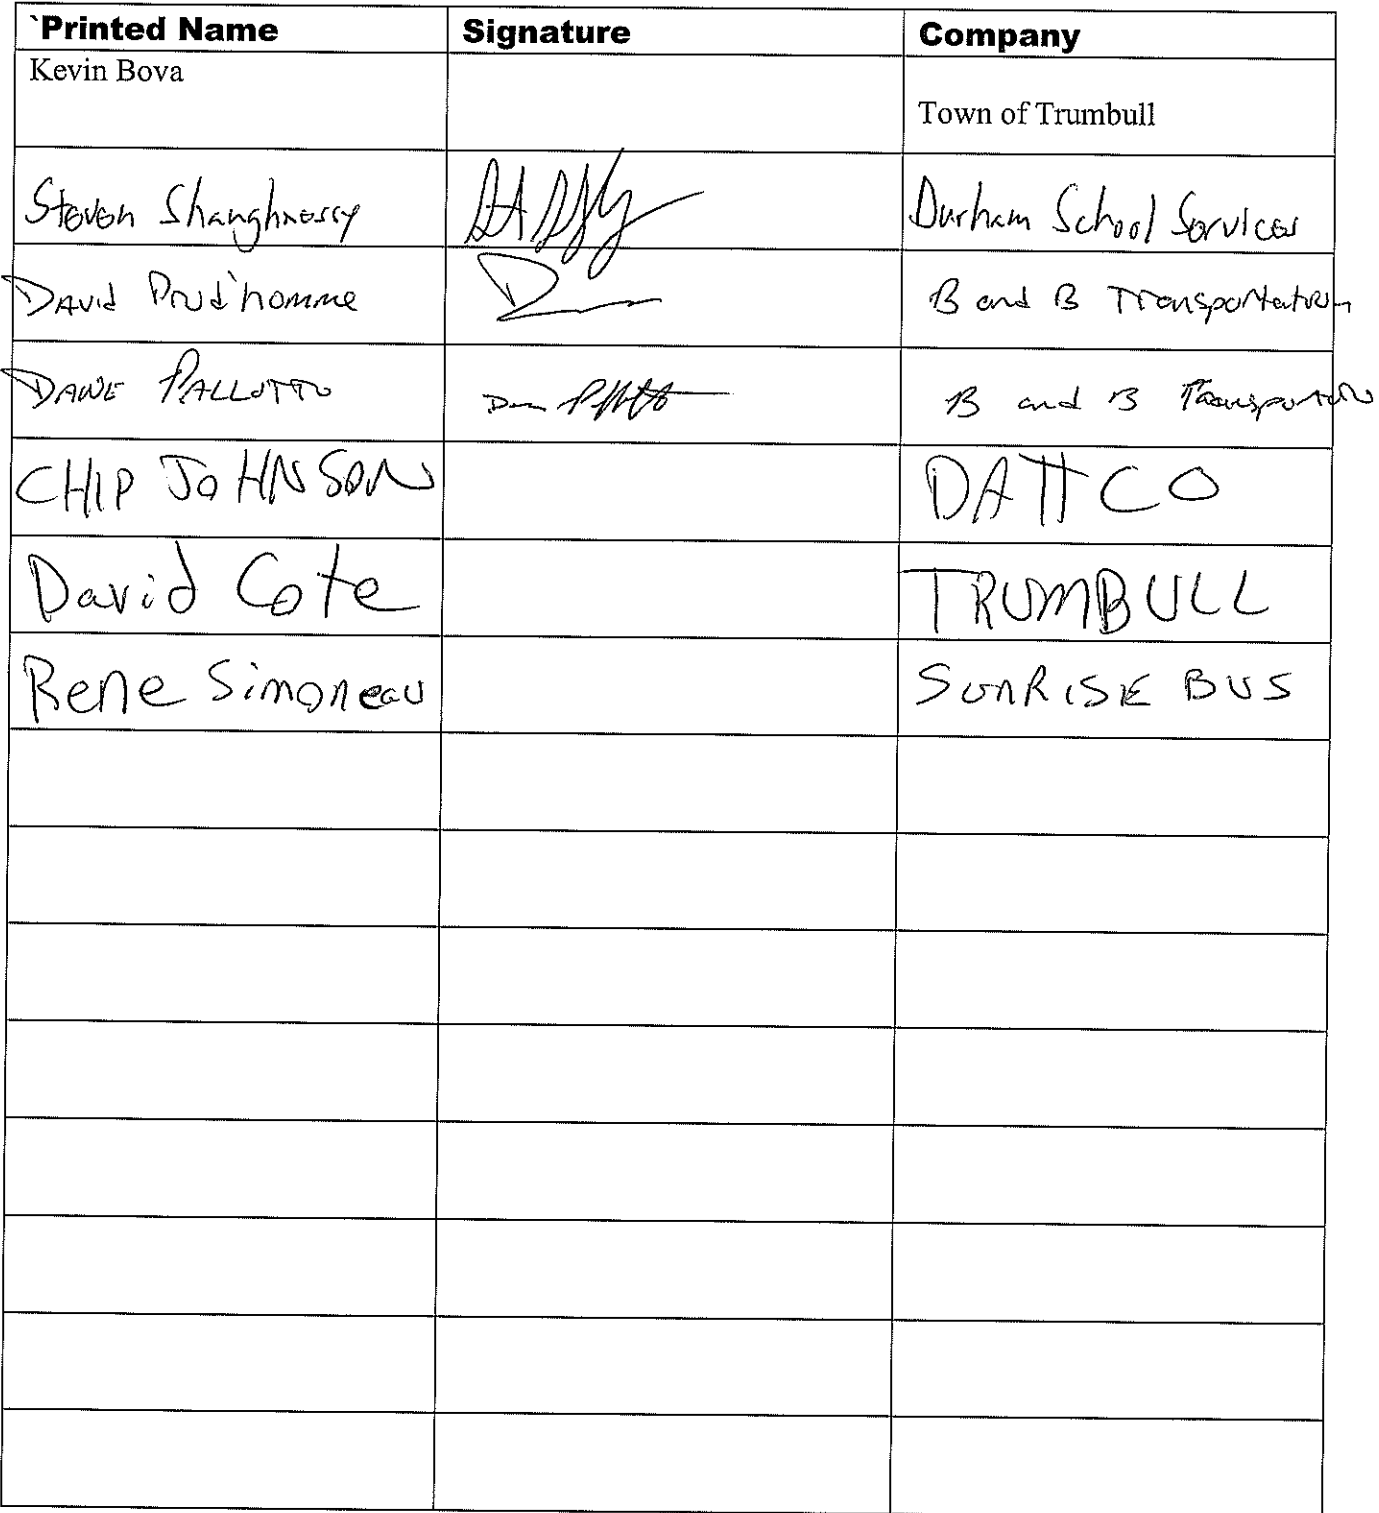 `Printed Name Signature Company
Kevin Bova
Town of Trumbull
Steven Shaughnessy Durham School Services
David Prud'homme B and B Transportation
DANE PALLOTTO B and B Transportation
CHIP JOHNSON DATTCO
David Cote TRUMBULL
Rene Simoneau SUNRISE BUS